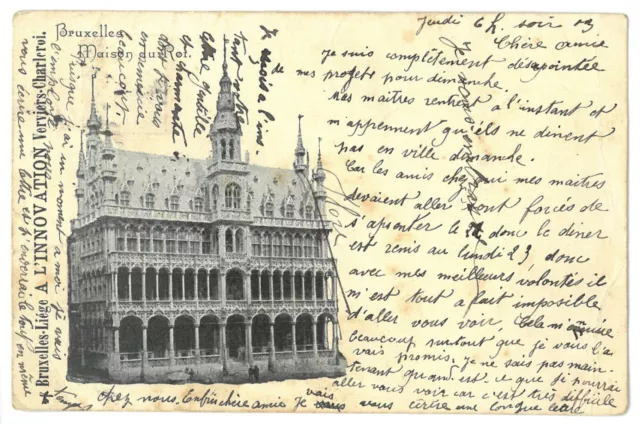 Bruxelles
Maison du Roi.
Bruxelles-Liège A L'INNOVATION Verviers-Charleroi.
Jeudi 6h. soir 03
Chère Amie
Je suis complètement désapointée de
mes projets pour dimanche.
Mes maitres rentrent à l'instant et
m'apprennent qu'ils ne dinent
pas en ville dimanche.
Car les amis chez qui mes maitres
devaient aller sont forcés de
s'absenter le 22 donc le diner
est remis au lundi 23 donc
avec mes meilleures volontés il
m'est tout a fait impossible
d'aller vous voir. Cela m'ennuie
beaucoup surtout que je vous l'a
vais promis, je ne sais pas main-
tenant quand est-ce que je pourrai
aller vous voir car c'est très difficile
chez nous. Enfin chère amie Je vais
vous écrire une longue lettre
Je
reçois à l'ins.
tant votre
lettre gentille
et charmante
beaucoup.
puisque j'ai un moment a moi je vais
vous écrire une lettre et